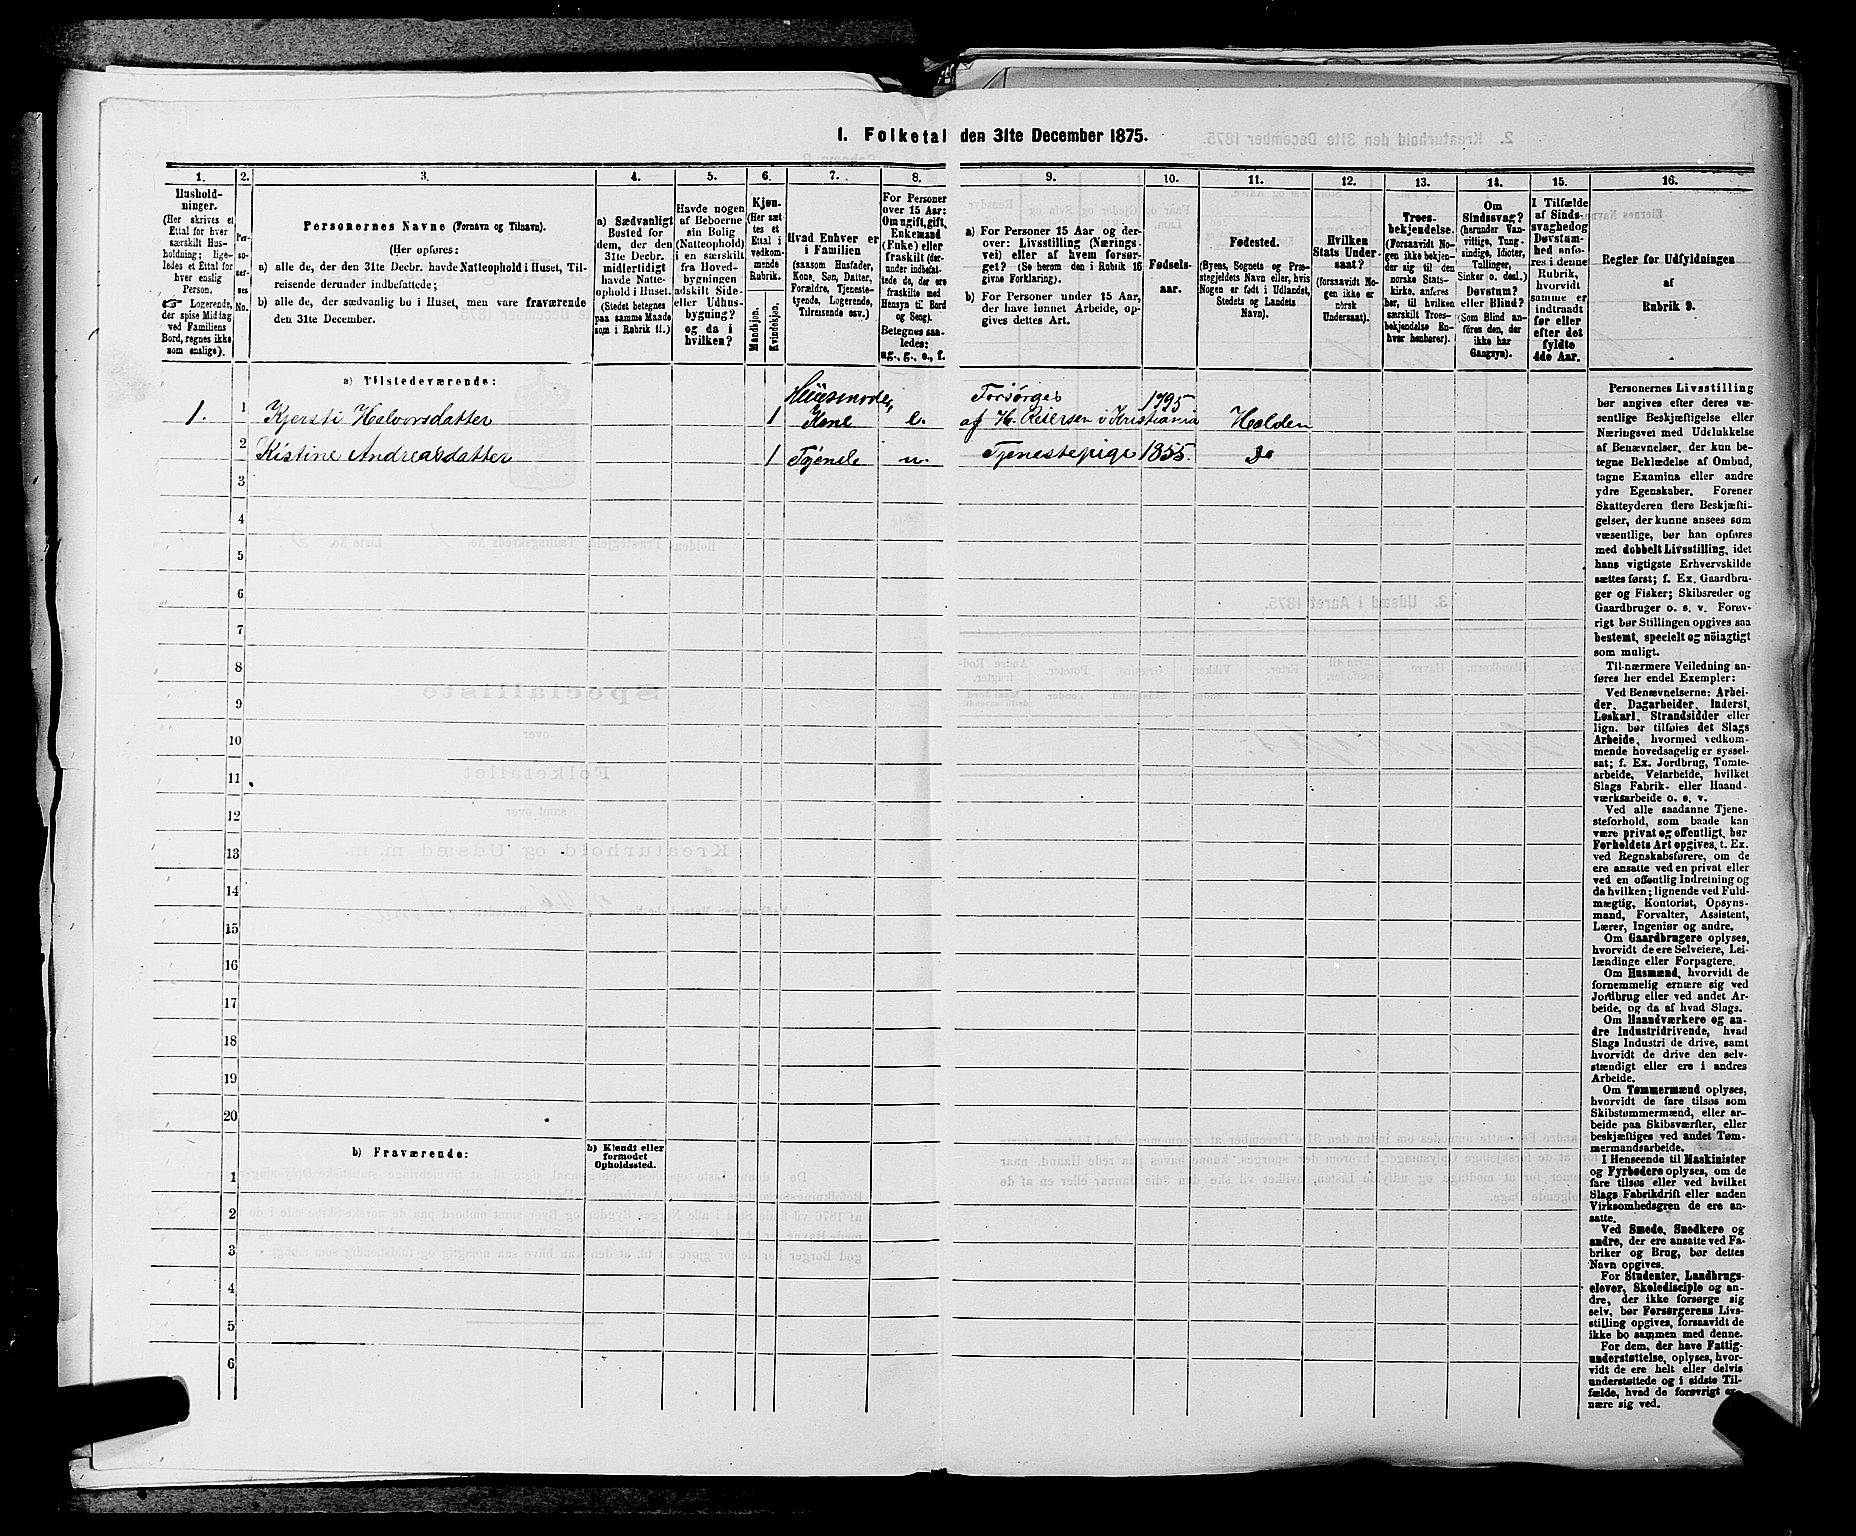 1. Folketal den 31te December 1875.
1. 2. 3. 4. 5. 6. 7. 8. 9. 10. 11. 12. 13. 14. 15. 16.
Hushold-
ninger.
(Her skrives et
Ettal for hver
særskilt Hus-
holdning; lige-
ledes et Ettal for
hver enslig
Person.
☞ Logerende,
der spise Middag
ved Familiens
Bord, regnes ikke
som enslige).
Per-
so-
ner-
nes
No.
Personernes Navne (Fornavn og Tilnavn).
(Her opføres:
a) alle de, der den 31te Decbr. havde Natteophold i Huset, Til-
reisende derunder indbefattede;
b) alle de, der sædvanlig bo i Huset, men vare fraværende
den 31te December.
a) Sædvanligt
Bosted for
dem, der den
31te Decbr.
midlertidigt
havde Natte-
ophold i Huset.
(Stedet betegnes
paa samme Maade
som i Rubrik 11.)
Havde nogen
af Beboerne
sin Bolig
(Natteophold)
i en særskilt
fra Hoved-
bygningen
adskilt Side-
eller Udhus-
bygning?
og da i
hvilken?
Kjøn.
(Her sæt
tes et
Ettal i
vedkom-
mende
Rubrik.
Mandkjøn.
Kvindekjøn.
Hvad Enhver er
i Familien
(saasom Husfader,
Kone, Søn, Datter,
Forældre, Tjeneste-
tyende, Logerende,
Tilreisende osv.)
For Personer
over 15 Aar:
Om ugift, gift,
Enkemand
(Enke) eller
fraskilt (der-
under indbefat-
tede de, der ere
fraskilte med
Hensyn til Bord
og Seng).
Betegnes saa-
ledes:
ug., g., e., f.
a) For Personer 15 Aar og der-
over: Livsstilling (Nærings-
vei) eller af hvem forsør-
get? (Se herom den i Rubrik 16
givne Forklaring).
b) For Personer under 15 Aar,
der have lønnet Arbeide, op-
gives dettes Art.
Fødsels-
aar.
Fødested.
(Byens, Sognets og Præ-
stegjeldets Navn eller, hvis
Nogen er født i Udlandet,
Stedets og Landets
Navn).
Hvilken
Stats Under-
saat?
(forsaavidt No-
gen ikke er
norsk
Undersaat).
Troes-
bekjendelse.
(Forsaavidt No-
gen ikke bekjen-
der sig til den
norske Stats-
kirke, anføres
her, til hvilken
særskilt Troes-
bekjendelse En-
hver henhører).
Om
Sindssvag?
(herunder Van-
vittige, Tung-
sindige, Idioter,
Tullinger,
Sinker o. desl.).
Døvstum?
eller Blind?
(Som Blind an-
føres den, der
ikke har
Gangsyn).
I Tilfælde
af Sinds-
svaghed og
Døvstum-
hed anfø-
res i denne
Rubrik,
hvorvidt
samme er
indtraadt
før eller
efter det
fyldte
4de Aar.
Regler for Udfyldningen
af
Rubrik 9.
a) Tilstedeværende:
1. 1 Kjersti Halvorsdatter 1 Huusmoder, Kone e. Forsørges af H. Reiersen i Kristiania 1795 Holden
2 Kistine Andreasdatter 1 Tjenele u. Tjenestepige 1855. Do
3
4
5
6
7
8
9
10
11
12
13
14
15
16
17
18
19
20
b) Fraværende:
b) Kjendt eller
formodet
Opholdssted.
1
2
3
4
5
6
Personernes Livsstilling
bør angives efter deres væ-
sentlige Beskjæftigelse eller
Næringsvei med Udelukkelse
af Benævnelser, der kun be-
tegne Beklædelse af Ombud,
tagne Examina eller andre
ydre Egenskaber. Forener
Skatteyderen flere Beskjæfti-
gelser, der kunne ansees som
væsentlige, bør han opføres
med dobbelt Livsstilling, idet
hans vigtigste Erhvervskilde
sættes først; f. Ex. Gaardbru-
ger og Fisker; Skibsreder og
Gaardbruger o. s. v. Forøv-
rigt bør Stillingen opgives saa
bestemt, specielt og nöiagtigt
som muligt.
Til nærmere Veiledning an-
føres her endel Exempler:
Ved Benævnelserne: Arbei-
der, Dagarbeider, Inderst,
Løskarl, Strandsidder eller
lign. bør tilføies det Slags
Arbeide, hvormed vedkom-
mende hovedsagelig er syssel-
sat; f. Ex. Jordbrug, Tomte-
arbeide, Veiarbeide, hvilket
Slags Fabrik- eller Haand-
værksarbeide o. s. v.
Ved alle saadanne Tjene-
steforhold, som baade kan
være privat og offentligt, bør
Forholdets Art opgives, t. Ex.
ved Regnskabsførere, om de
ere ansatte ved en privat eller
ved en offentlig Indretning og
da hvilken; lignende ved Fuld-
mægtig, Kontorist, Opsyns-
mand, Forvalter, Assistent,
Lærer, Ingeniør og andre.
Om Gaardbrugere oplyses,
hvorvidt de ere Selveiere, Lei-
lændinge eller Forpagtere.
Om Husmænd, hvorvidt de
fornemmelig ernære sig ved
Jordbrug eller ved andet Ar-
beide, og da af hvad Slags.
Om Haandværkere og an-
dre Industridrivende, hvad
Slags Industri de drive, samt
hvorvidt de drive den selv-
stændigt eller ere i andres
Arbeide.
Om Tømmermænd oplyses,
hvorvidt de fare tilsøs som
Skibstømmermænd, eller ar-
beide paa Skibsværfter, eller
beskjæftiges ved andet Tøm-
mermandsarbeide.
I Henseende til Maskinister
og Fyrbødere oplyses, om de
fare tilsøs eller ved hvilket
Slags Fabrikdrift eller anden
Virksomhedsgren de ere an-
satte.
Ved Smede, Snedkere og
andre, der ere ansatte ved Fa-
briker og Brug, bør dettes
Navn opgives.
For Studenter, Landbrugs-
elever, Skoledisciple og an-
dre, der ikke forsørge sig
selv, bør Forsørgerens Livs-
stilling opgives, forsaavidt de
ikke bo sammen med denne.
For dem, der have Fattig-
understøttelse, oplyses, hvor-
vidt de ere helt eller delvis
understøttede og i sidste Til-
fælde, hvad de forøvrigt er-
nære sig ved.